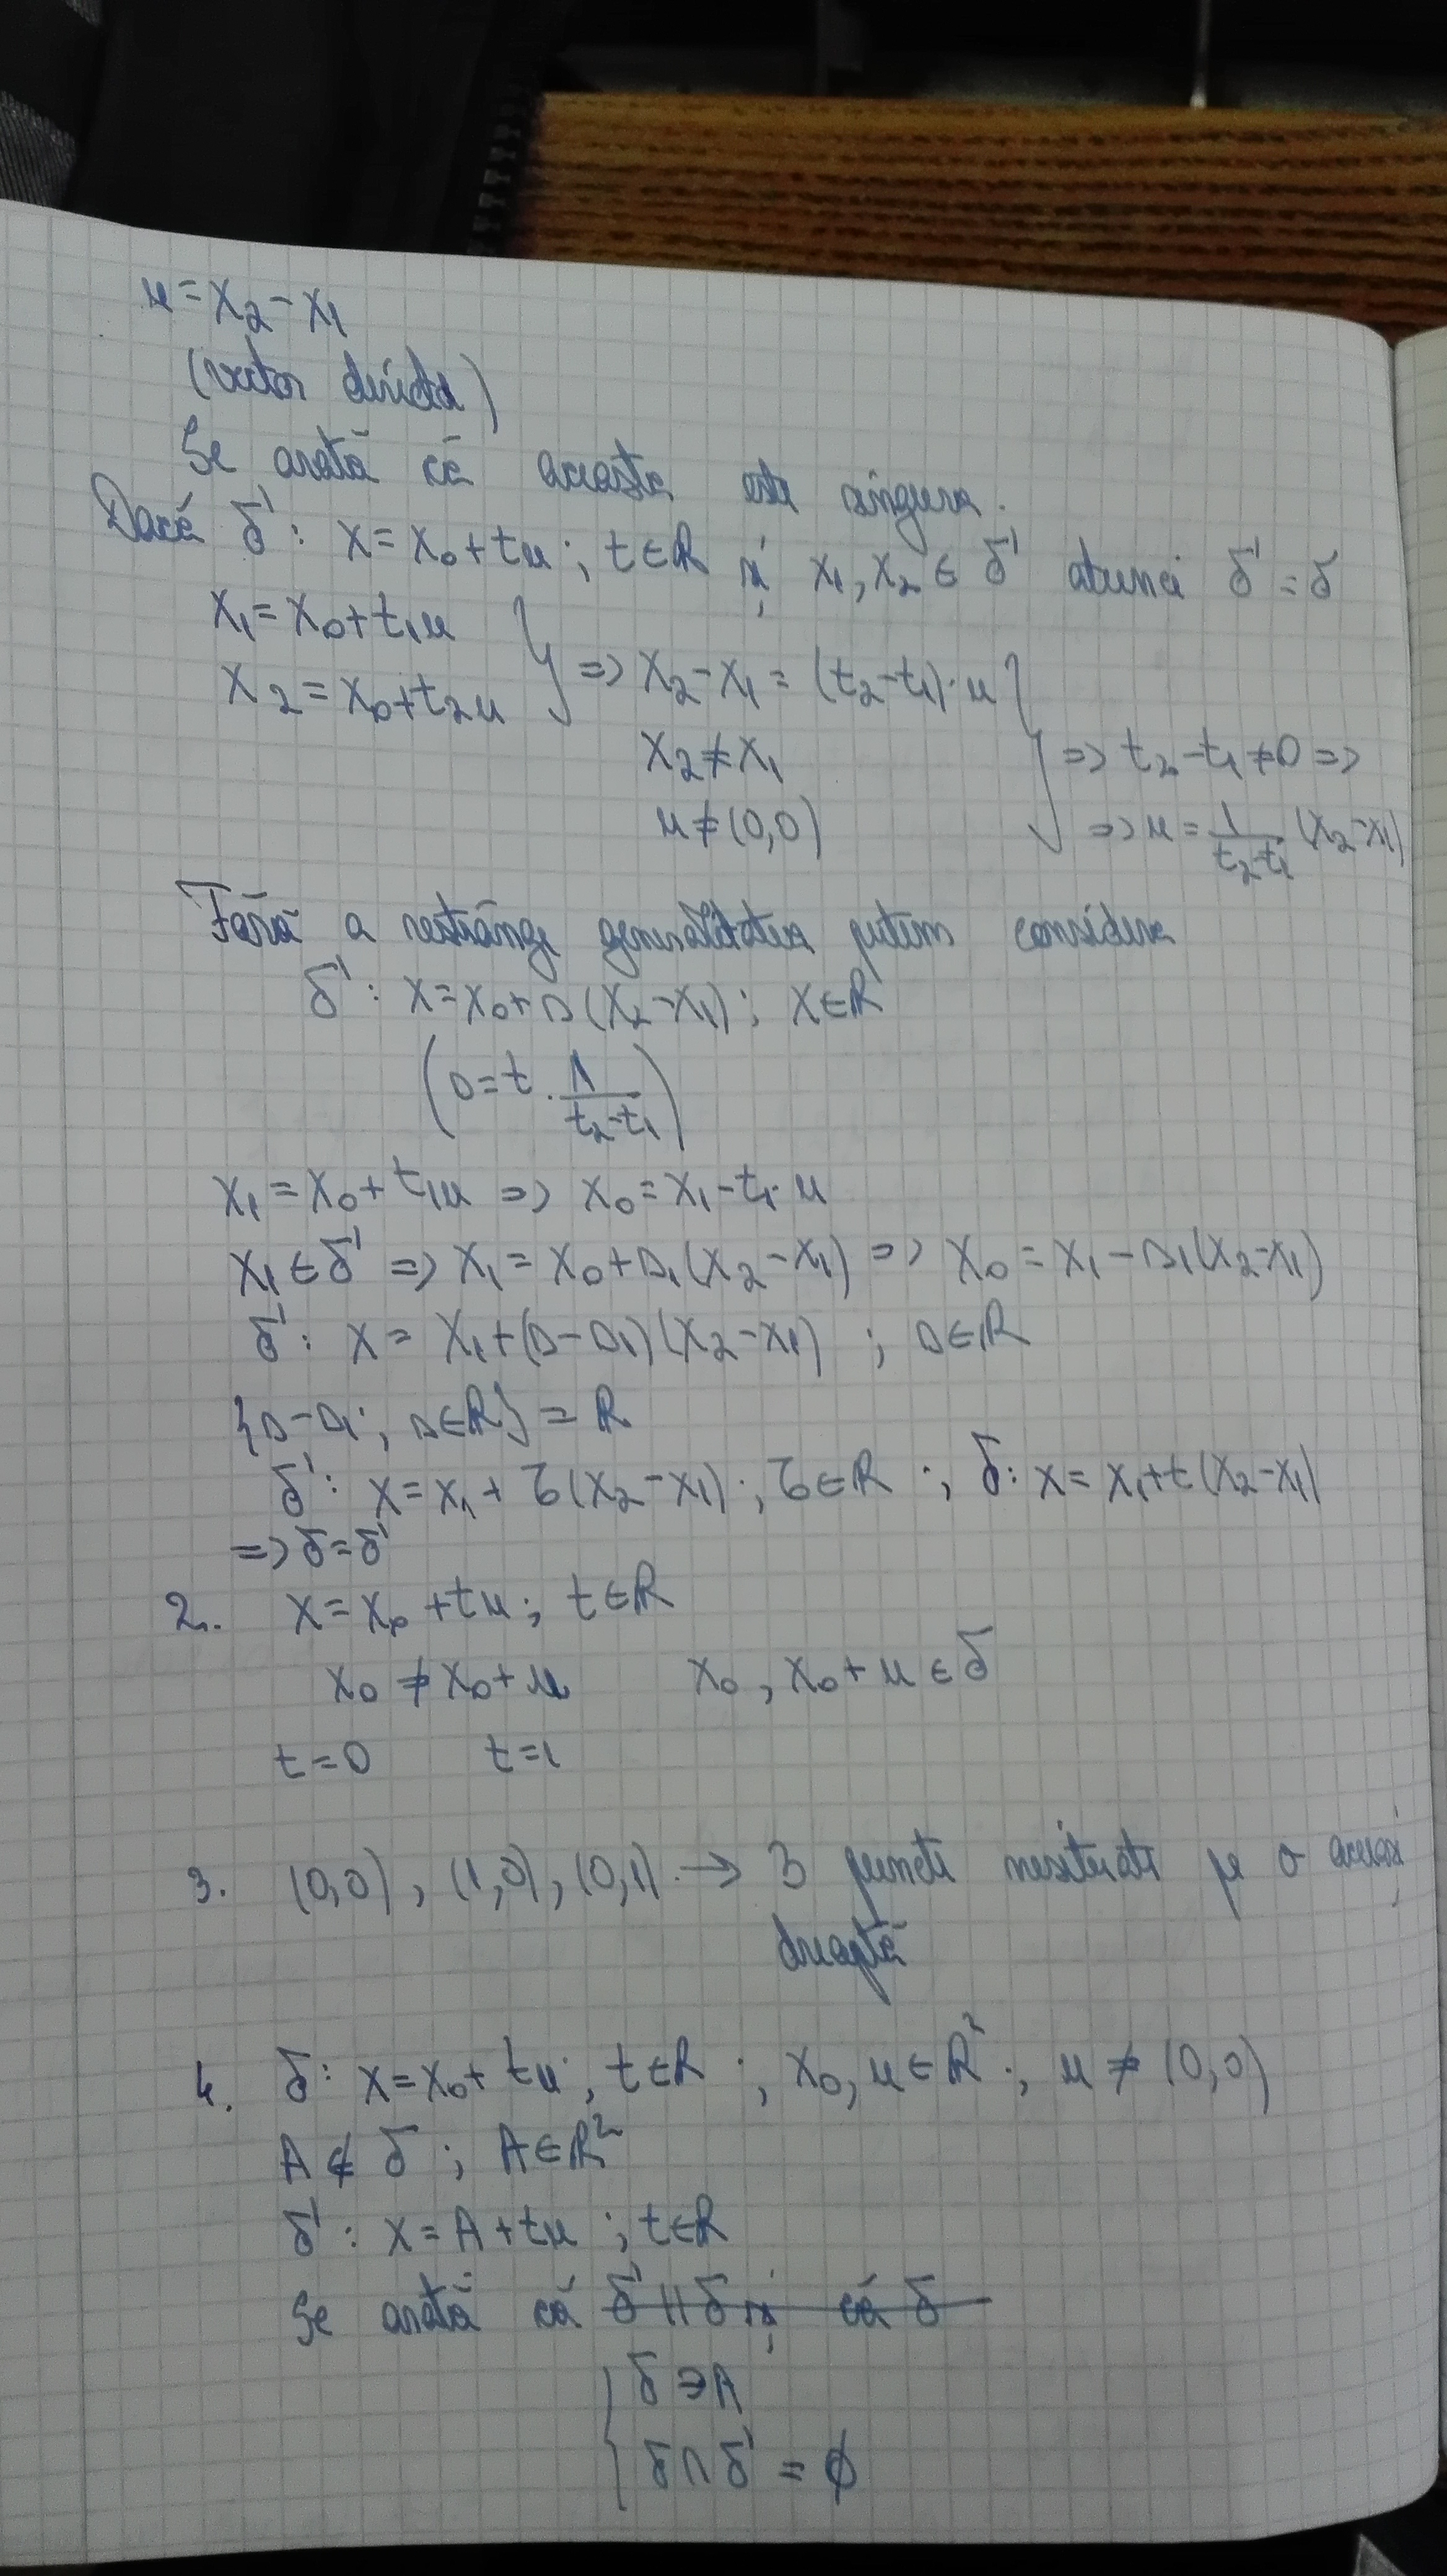 u = x₂ - x₁
(vector director)
Se arată că aceasta este singura.
Dacă δ' : x = x₀ + tu ; t ∈ ℝ și x₁, x₂ ∈ δ' atunci δ' = δ
x₁ = x₀ + t₁u
x₂ = x₀ + t₂u } => x₂ - x₁ = (t₂ - t₁)·u
x₂ ≠ x₁ } => t₂ - t₁ ≠ 0 =>
u ≠ (0,0) => u = 1/(t₂ - t₁) (x₂ - x₁)
Fără a restrânge generalitatea putem considera
δ' : x = x₀ + s(x₂ - x₁) ; x ∈ ℝ
(s = t · 1/(t₂ - t₁))
x₁ = x₀ + t₁u => x₀ = x₁ - t₁·u
x₁ ∈ δ' => x₁ = x₀ + s₁(x₂ - x₁) => x₀ = x₁ - s₁(x₂ - x₁)
δ' : x = x₁ + (s - s₁)(x₂ - x₁) ; s ∈ ℝ
{s - s₁ ; s ∈ ℝ} = ℝ
δ' : x = x₁ + τ(x₂ - x₁) ; τ ∈ ℝ ; δ : x = x₁ + t(x₂ - x₁)
=> δ = δ'
2. x = x₀ + tu ; t ∈ ℝ
x₀ ≠ x₀ + u x₀, x₀ + u ∈ δ
t = 0 t = 1
3. (0,0), (1,0), (0,1). → 3 puncte nesituate pe o aceeași
dreaptă
4. δ : x = x₀ + tu ; t ∈ ℝ ; x₀, u ∈ ℝ² ; u ≠ (0,0)
A ∉ δ ; A ∈ ℝ²
δ' : x = A + tu ; t ∈ ℝ
Se arată că δ' || δ și că δ
{ δ ∋ A
δ ∩ δ' = ∅